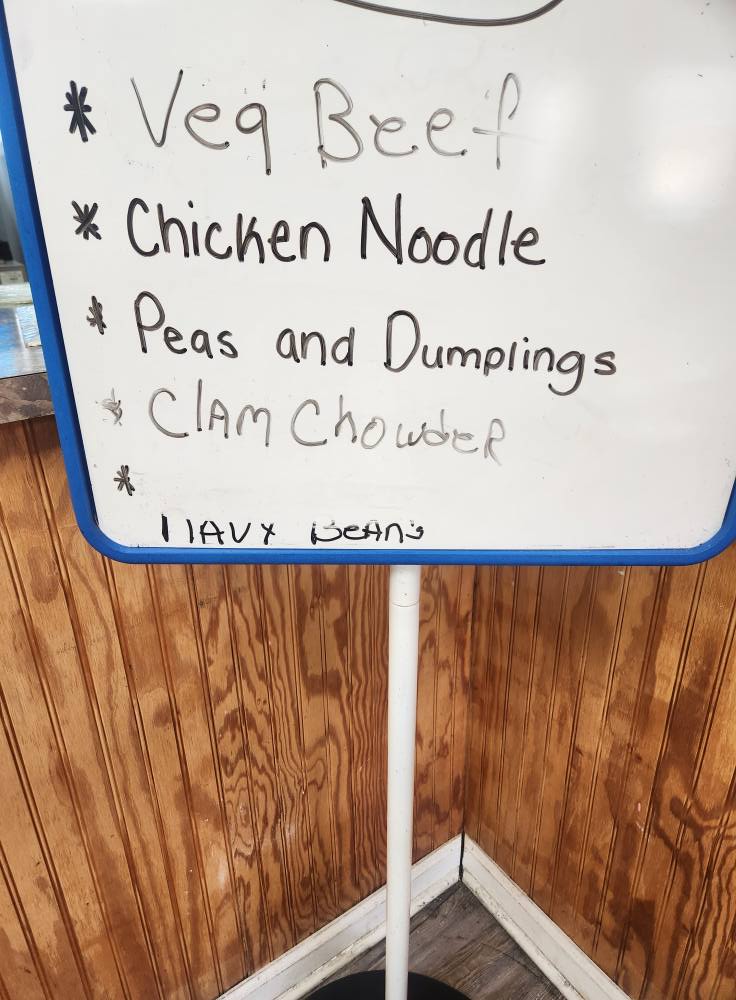 * Veg Beef
* Chicken Noodle
* Peas and Dumplings
* ClAM ChowdeR
*
NAVY BeANs